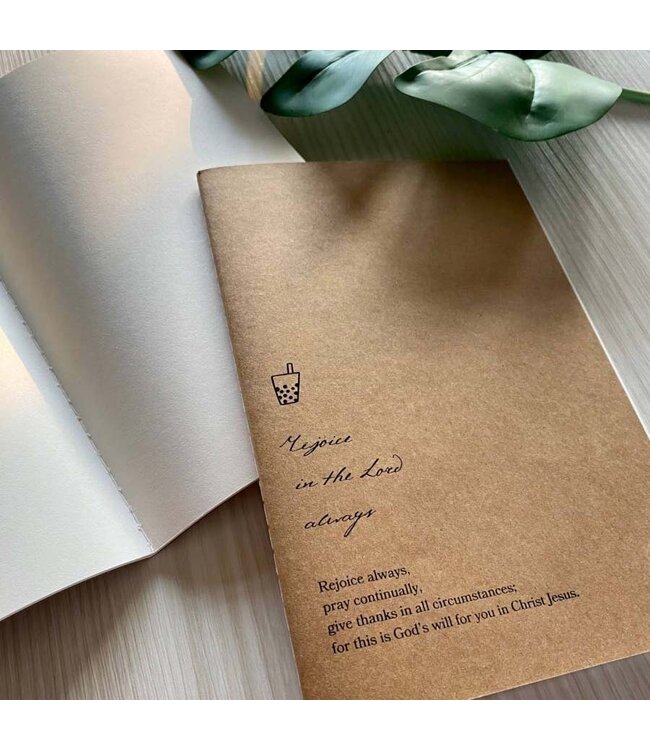 Rejoice
in the Lord
always
Rejoice always,
pray continually,
give thanks in all circumstances;
for this is God's will for you in Christ Jesus.